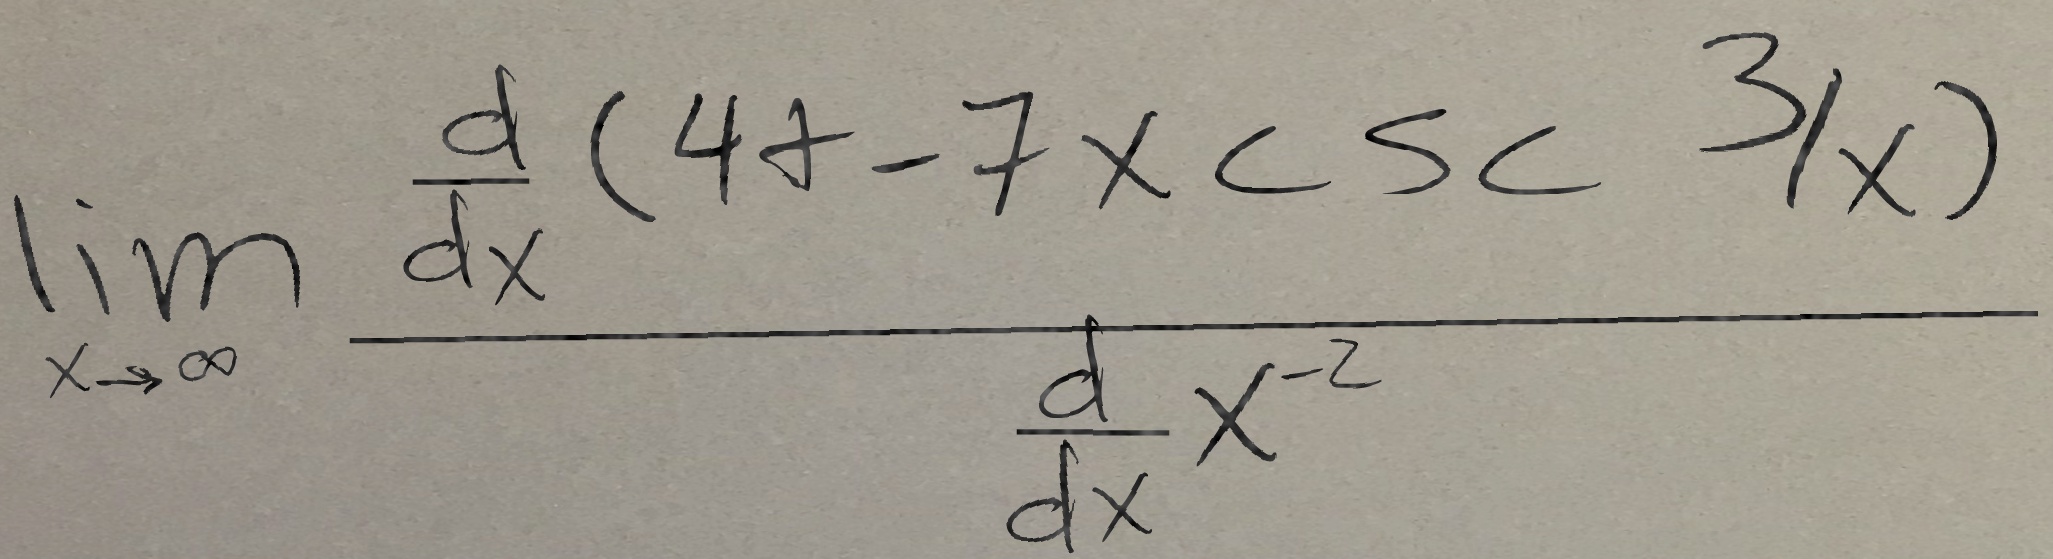 lim_{x→∞} \frac{\frac{d}{dx}(4+-7x csc 3/x)}{\frac{d}{dx} x^{-2}}